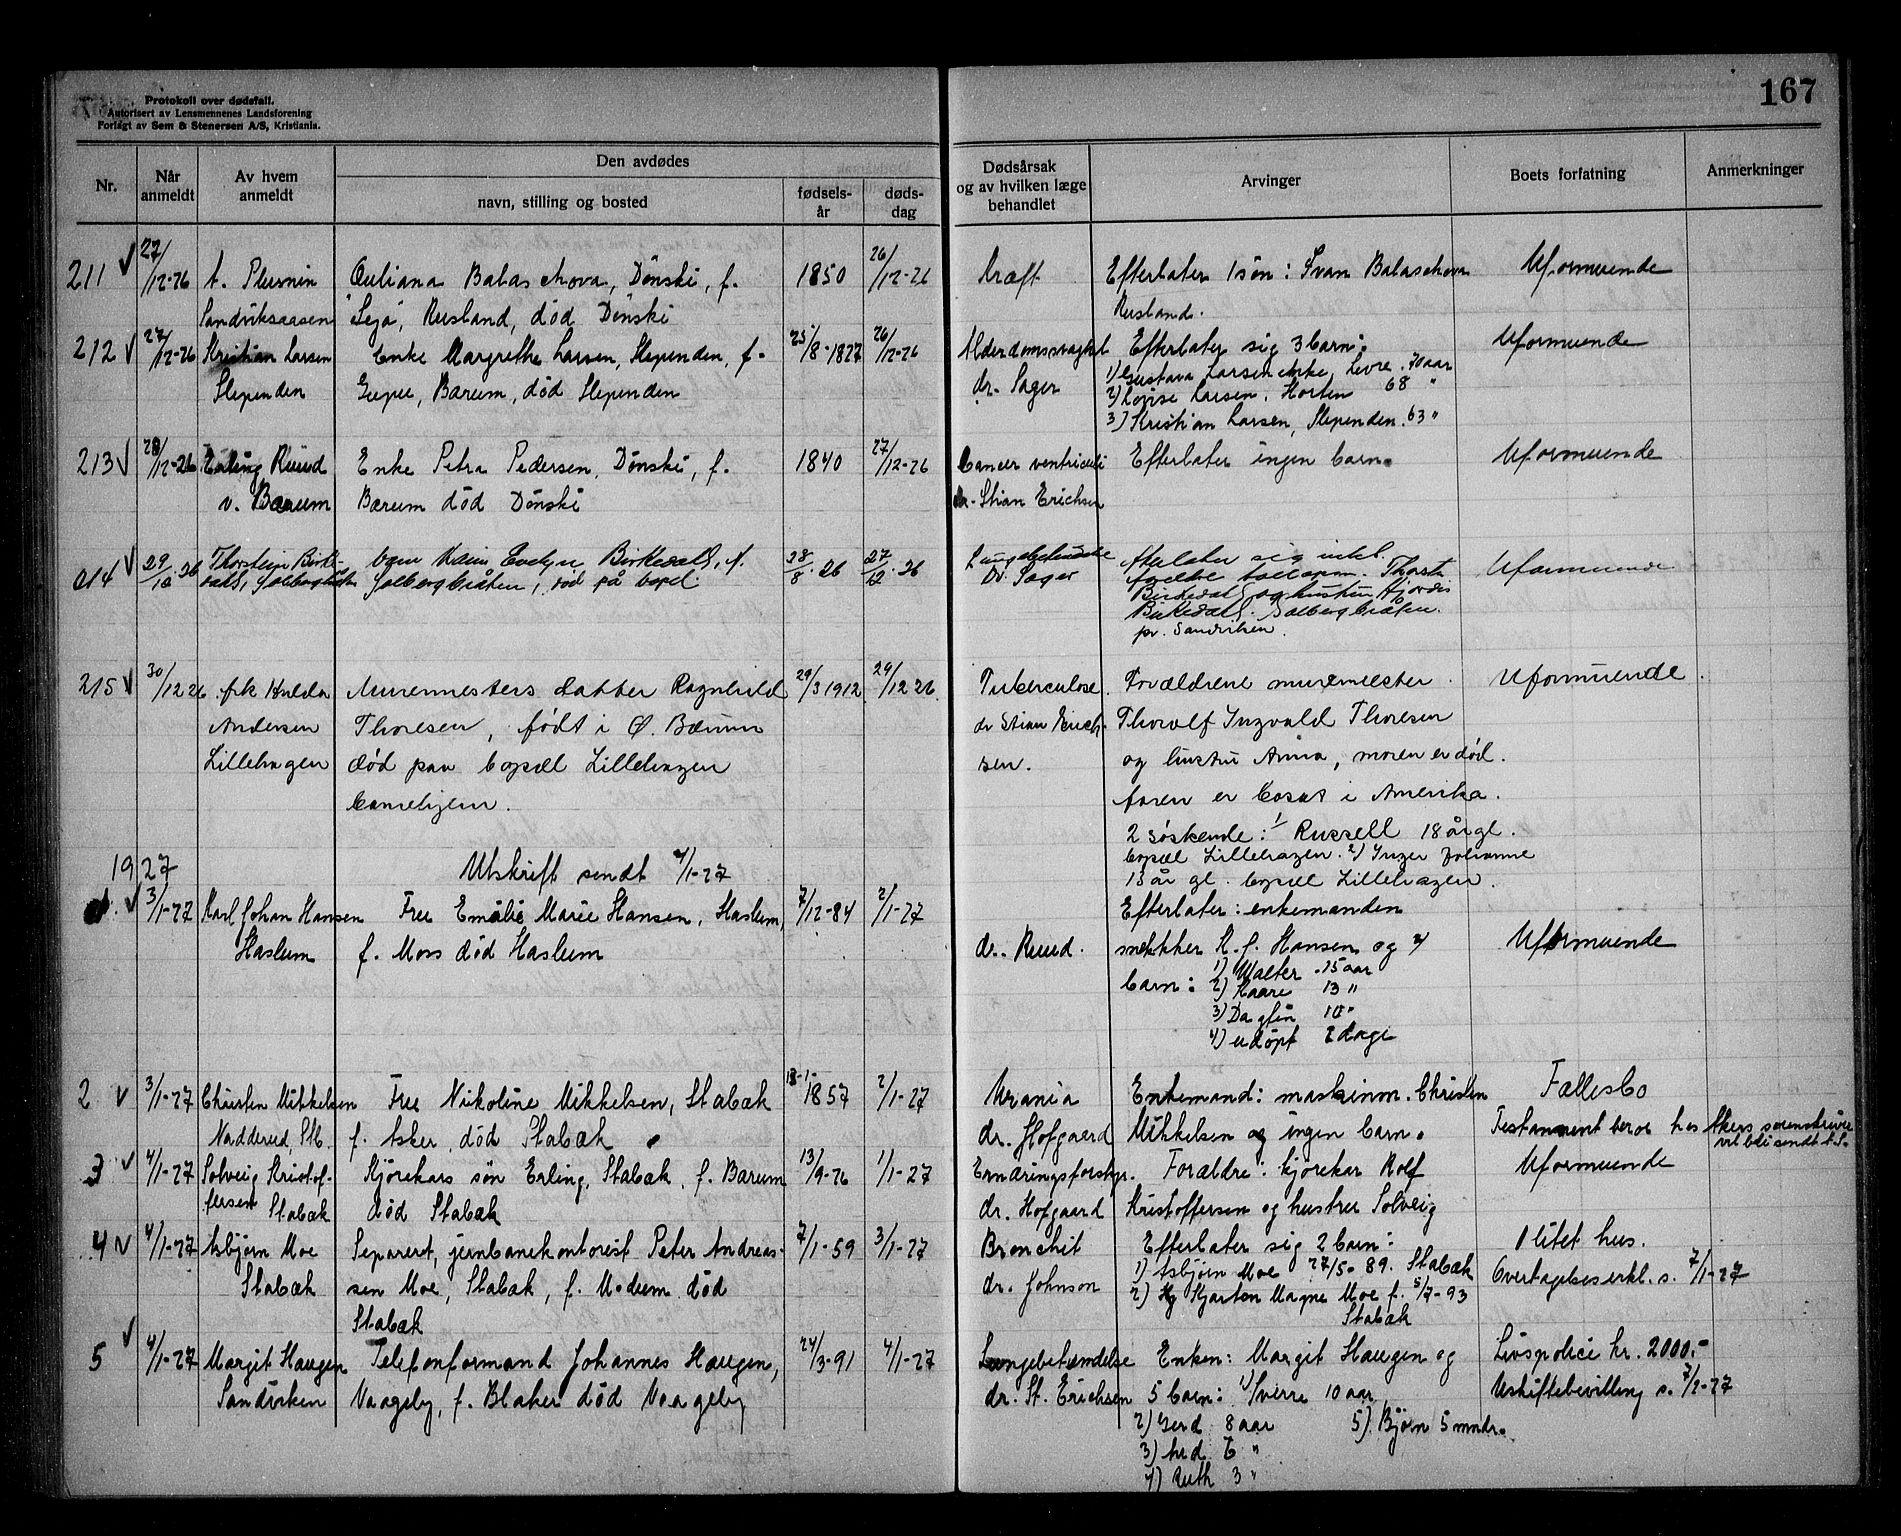 167
Protokoll over dødsfall.
Autorisert av Lensmennenes Landsforening
Forlagt av Sem & Stenersen A/S, Kristiania.
Nr.
Når anmeldt
Av hvem anmeldt
Den avdødes
navn, stilling og bosted
fødsels-år
døds-dag
Dødsårsak og av hvilken læge behandlet
Arvinger
Boets forfatning
Anmerkninger
211 27/12-26 A. Plusnin Juliana Balaschova, Dønski, f. 1850 26/12-26 Kræft Efterlater 1 søn: Ivan Balaschova Uformuende
Sandviksaasen Rusland, død Dønski Rusland.
212 27/12-26 Kristian Larsen Enke Margrethe Larsen, Slependen, f. 25/8-1827 26/12-26 Alderdomssvaghet Efterlater sig 3 barn: Uformuende
Slependen Bærum, død Slependen dr. Sager 1) Gustava Larsen enke, Levre. 70 aar
2) Lovise Larsen, Horten 68 "
3) Kristian Larsen, Slependen. 63 "
213 28/12-26 Erling Ruud Enke Petra Pedersen, Dønski, f. 1840 27/12-26 Cancer ventriculi Efterlater ingen barn. Uformuende
v. Bærum Bærum død Dønski dr. Stian Erichsen
214 29/12 26 Thorstein Birke- barn Evelyn Birkedal, f. 28/8 . 26 27/12 . 26 Lungebetændelse Efterlater sig intet. Uformuende
dahl, Solbergbråten Solbergbråten, død på bopel. Dr. Sager Thorst.
Birkedal og hustru Hjørdis
Birkedal. Solbergbråten.
pr. Sandviken.
215 30/12 26 frk Hulda Murermesters datter Ragnhild 29/3 1912 29/12 26 Tuberculose. Forældrene murermester Uformuende.
Andersen Thoresen, født i Ø. Bærum dr Stian Erich- Thorolf Ingvald Thoresen
Lillehagen død paa bopæl Lillehagen sen. og hustru Anna, moren er død.
barnehjem. faren er bosat i Amerika.
2 søskende: 1) Russell 18 år gl.
bopæl Lillehagen. 2) Inger Johanne
13 år gl. bopæl Lillehagen.
1927 Utskrift sendt 4/1-27
1. 3/1-27 Karl Johan Hansen Fru Emilie Marie Hansen, Haslum, 7/12-84 2/1-27 Efterlater: enkemanden
Haslum f. Moss død Haslum dr. Ruud. snekker K. J. Hansen og 4 Uformuende
barn: 1) Walter 15 aar
2) Kaare 13 "
3) Dagfin 10 "
4) udøpt 2 dage
2 3/1-27 Christen Mikkelsen Fru Nikoline Mikkelsen, Stabæk 13-1-1857 2/1-27 Urania Enkemand: maskinm. Christen Fællesbo
Nadderud, Stb. f. Asker, død Stabæk dr. Hofgaard Mikkelsen og ingen barn. Testament beror hos Akers sorenskriver
vil bli sendt t. S.
3 4/1-27 Solveig Kristof- Kjørekars søn Erling, Stabæk, f. Bærum 13/9-26 1/1-27 Ernæringsforstyr. Forældre: kjørekar Rolf Uformuende
fersen Stabæk død Stabæk dr. Hofgaard Kristoffersen og hustru Solveig
4 4/1-27 Asbjørn Moe Separert, jernbanekontorist Peter Andreas- 7/1-59 3/1-27 Bronchit Efterlater sig 2 barn: 1 litet hus.
Stabæk sen Moe, Stabæk, f. Modum død dr. Johnson 1) Asbjørn Moe 27/5-89. Stabæk Overtagelseserkl. s. 7/1-27
Stabæk 2) Kjartan Magne Moe f. 5/7-93
Stabæk
5 4/1-27 Margit Haugen Telefonformand Johannes Haugen, 24/3-91 4/1-27 Lungebetændelse Enken: Margit Haugen og Livspolice kr. 2000.-
Sandviken Vaageby, f. Blaker død Vaageby dr. St. Erichsen 5 barn: 1) Sverre 10 aar Uskiftebevilling s. 7/1-27
2) Gerd 8 aar 5) Bjørn 5 mndr.
3) 6 "
4) Ruth 3 "